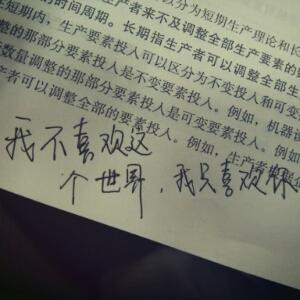 以分为短期生产理论和长
产者来不及调整全部生产要素的
的时间周期。长期指生产者可以调整全部生
短期内，生产要素投入可以区分为不变投入和可变
整的那部分要素投入是不变要素投入。例如，机器设
数量调整的那部分要素投入是可变要素投入。例如，
产者可以调整全部的要素投入。例如，生产者
我不喜欢这
个世界，我只喜欢你